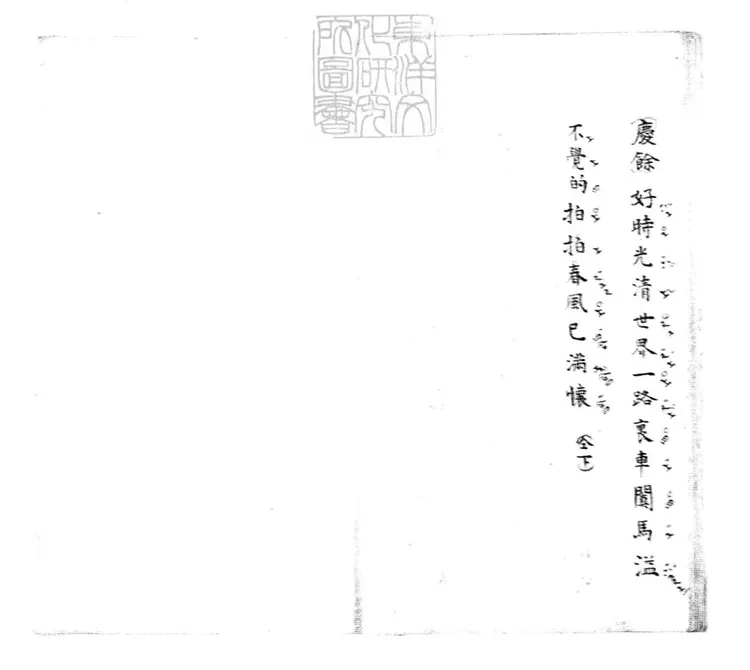 東洋文
化研究
所圖書
慶餘 好時光清世界一路裏車闐馬溢
不覺的拍拍春風已滿懷 仝下